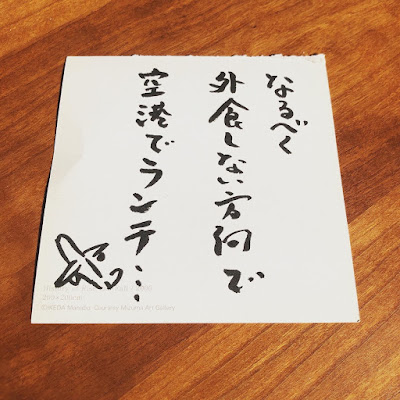 なるべく
外食しない方向で
空港でランチ…
©IKEDA Manabu Courtesy Mizuma Art Gallery